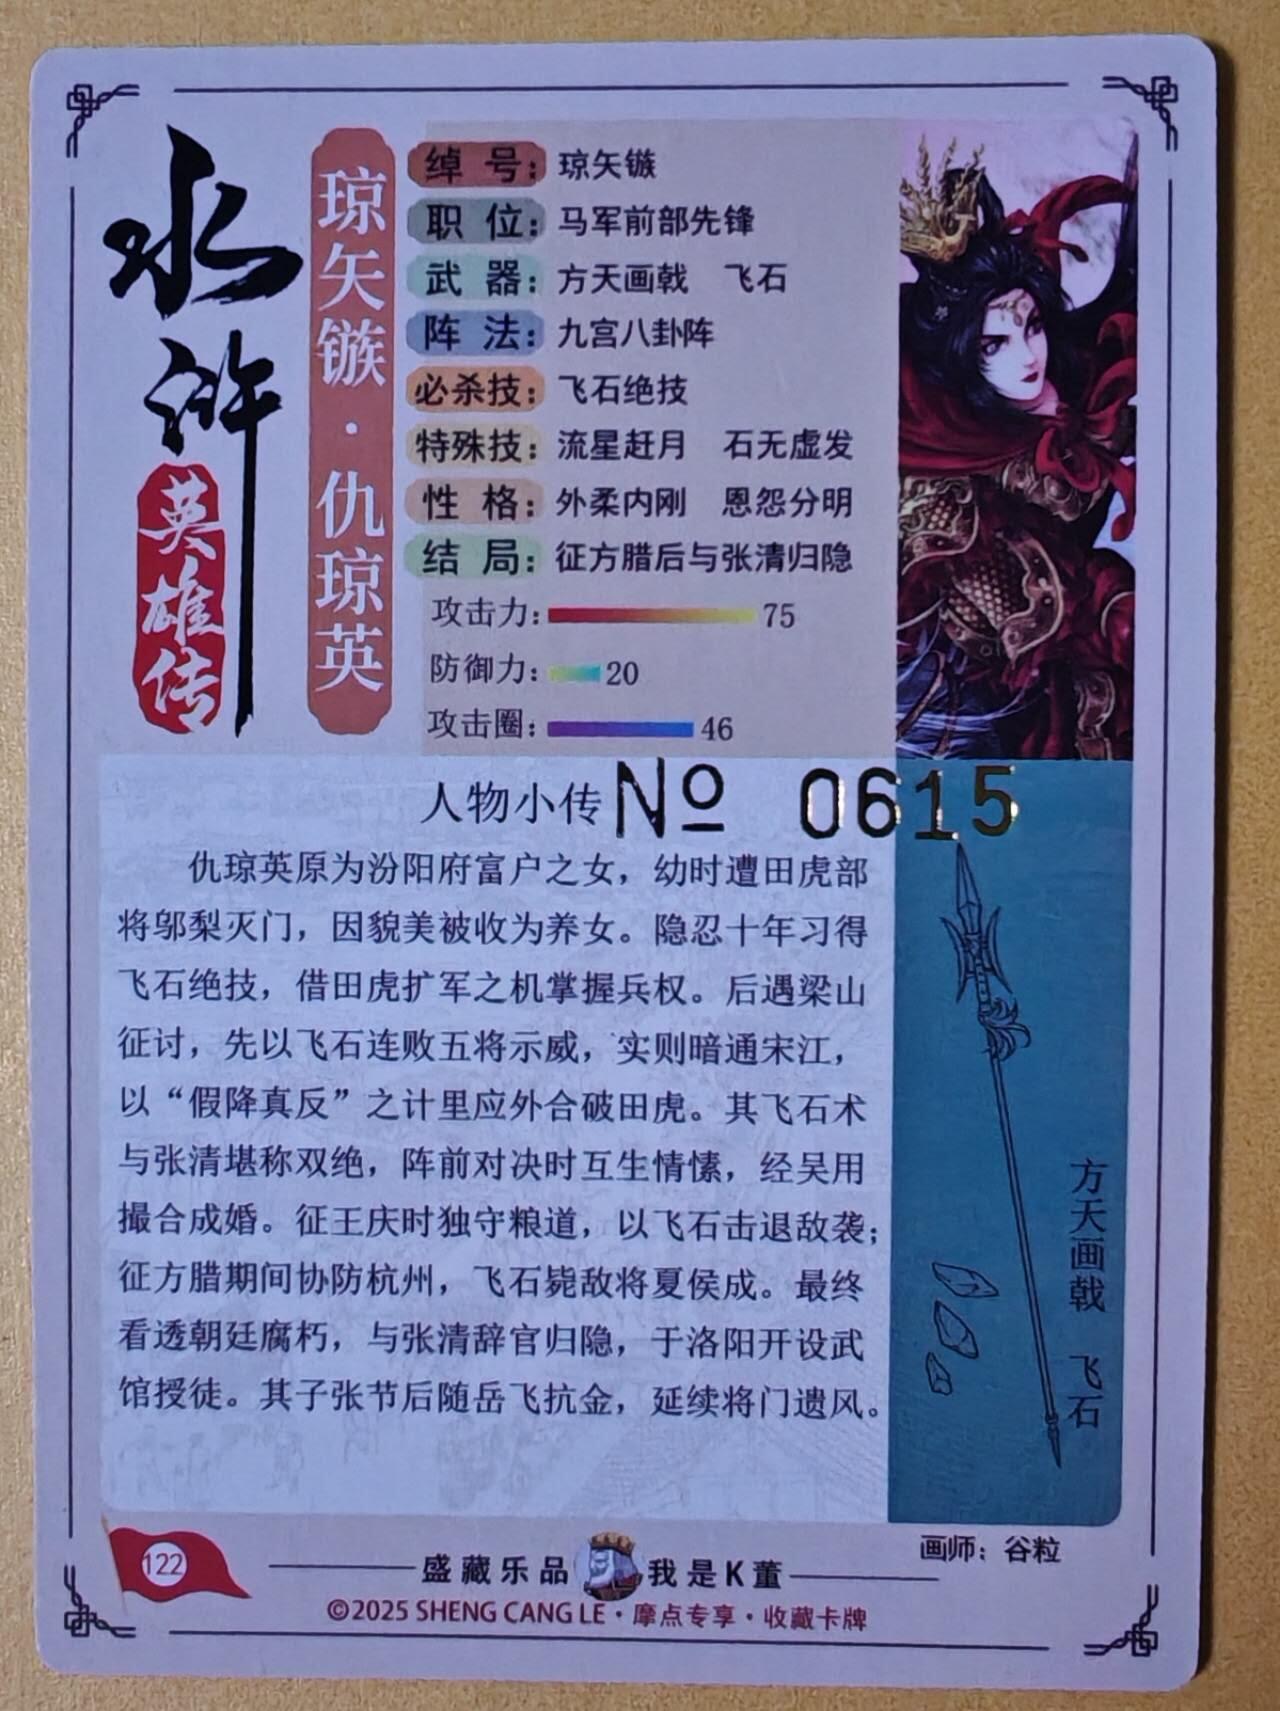 水浒
英雄传
琼矢镞·仇琼英
绰号：琼矢镞
职位：马军前部先锋
武器：方天画戟 飞石
阵法：九宫八卦阵
必杀技：飞石绝技
特殊技：流星赶月 石无虚发
性格：外柔内刚 恩怨分明
结局：征方腊后与张清归隐
攻击力：75
防御力：20
攻击圈：46
人物小传
Nº 0615
仇琼英原为汾阳府富户之女，幼时遭田虎部
将邬梨灭门，因貌美被收为养女。隐忍十年习得
飞石绝技，借田虎扩军之机掌握兵权。后遇梁山
征讨，先以飞石连败五将示威，实则暗通宋江，
以“假降真反”之计里应外合破田虎。其飞石术
与张清堪称双绝，阵前对决时互生情愫，经吴用
撮合成婚。征王庆时独守粮道，以飞石击退敌袭；
征方腊期间协防杭州，飞石毙敌将夏侯成。最终
看透朝廷腐朽，与张清辞官归隐，于洛阳开设武
馆授徒。其子张节后随岳飞抗金，延续将门遗风。
方天画戟 飞石
画师：谷粒
122
盛藏乐品 我是K董
©2025 SHENG CANG LE·摩点专享·收藏卡牌